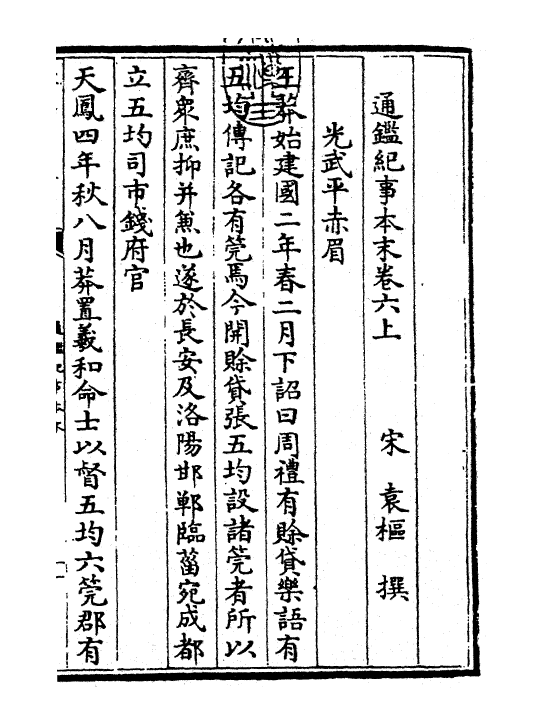 通鑑紀事本末卷六上
宋 袁樞 撰
光武平赤眉
王莽始建國二年春二月下詔曰周禮有賒貸樂語有
五均傳記各有筦焉今開賒貸張五均設諸筦者所以
齊衆庶抑并兼也遂於長安及洛陽邯鄲臨菑宛成都
立五均司市錢府官
天鳳四年秋八月莽置羲和命士以督五均六筦郡有